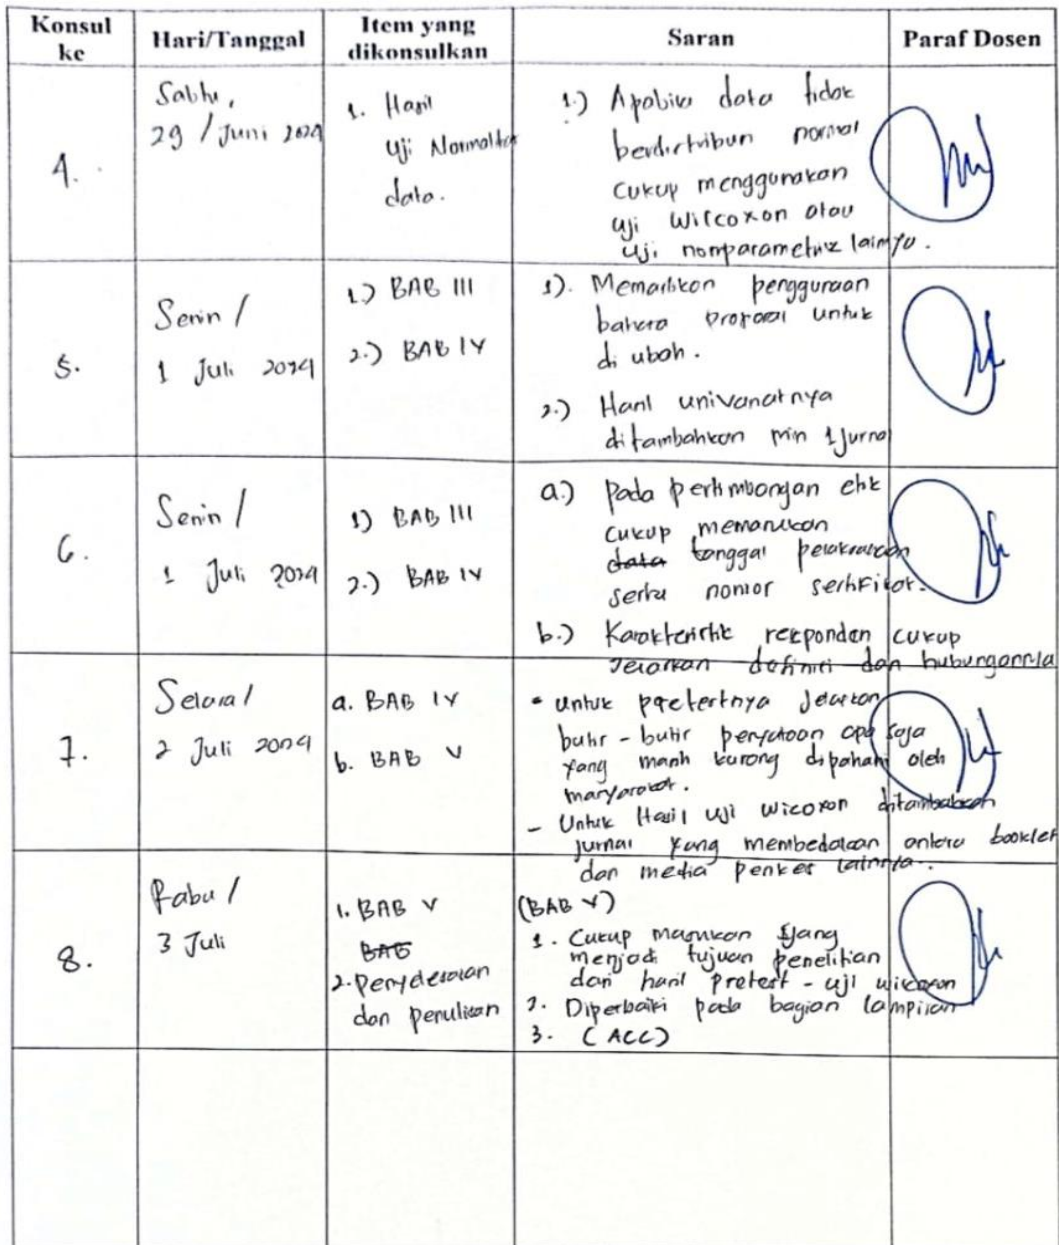 Konsul ke
Hari/Tanggal
Item yang dikonsulkan
Saran
Paraf Dosen
4.
Sabtu,
29 / Juni 2024
1. Hasil
Uji Normalitas
data.
1.) Apabila data tidak
berdistribusi normal
cukup menggunakan
uji Wilcoxon atau
uji nonparametrik lainnya.
5.
Senin /
1 Juli 2024
1.) BAB III
2.) BAB IV
1). Memastikan penggunaan
bahasa proposal untuk
di ubah.
2.) Hasil univariatnya
ditambahkan min 1 jurnal
6.
Senin /
1 Juli 2024
1) BAB III
2.) BAB IV
a.) Pada pertimbangan etik
cukup memasukkan
data tanggal pelaksanaan
serta nomor sertifikat.
b.) Karakteristik responden cukup
Jelaskan definisi dan hubungannya
7.
Selasa /
2 Juli 2024
a. BAB IV
b. BAB V
- Untuk pretestnya Jelaskan
butir - butir pernyataan apa saja
yang masih kurang dipahami oleh
masyarakat.
- Untuk Hasil uji wicoxon ditambahkan
jurnal yang membedakan antara booklet
dan media penkes lainnya.
8.
Rabu /
3 Juli
1. BAB V
BAB
2. Penyelesaian
dan penulisan
(BAB V)
1. Cukup masukkan yang
menjadi tujuan penelitian
dari hasil pretest - uji wicoxon
2. Diperbaiki pada bagian lampiran
3. (ACC)